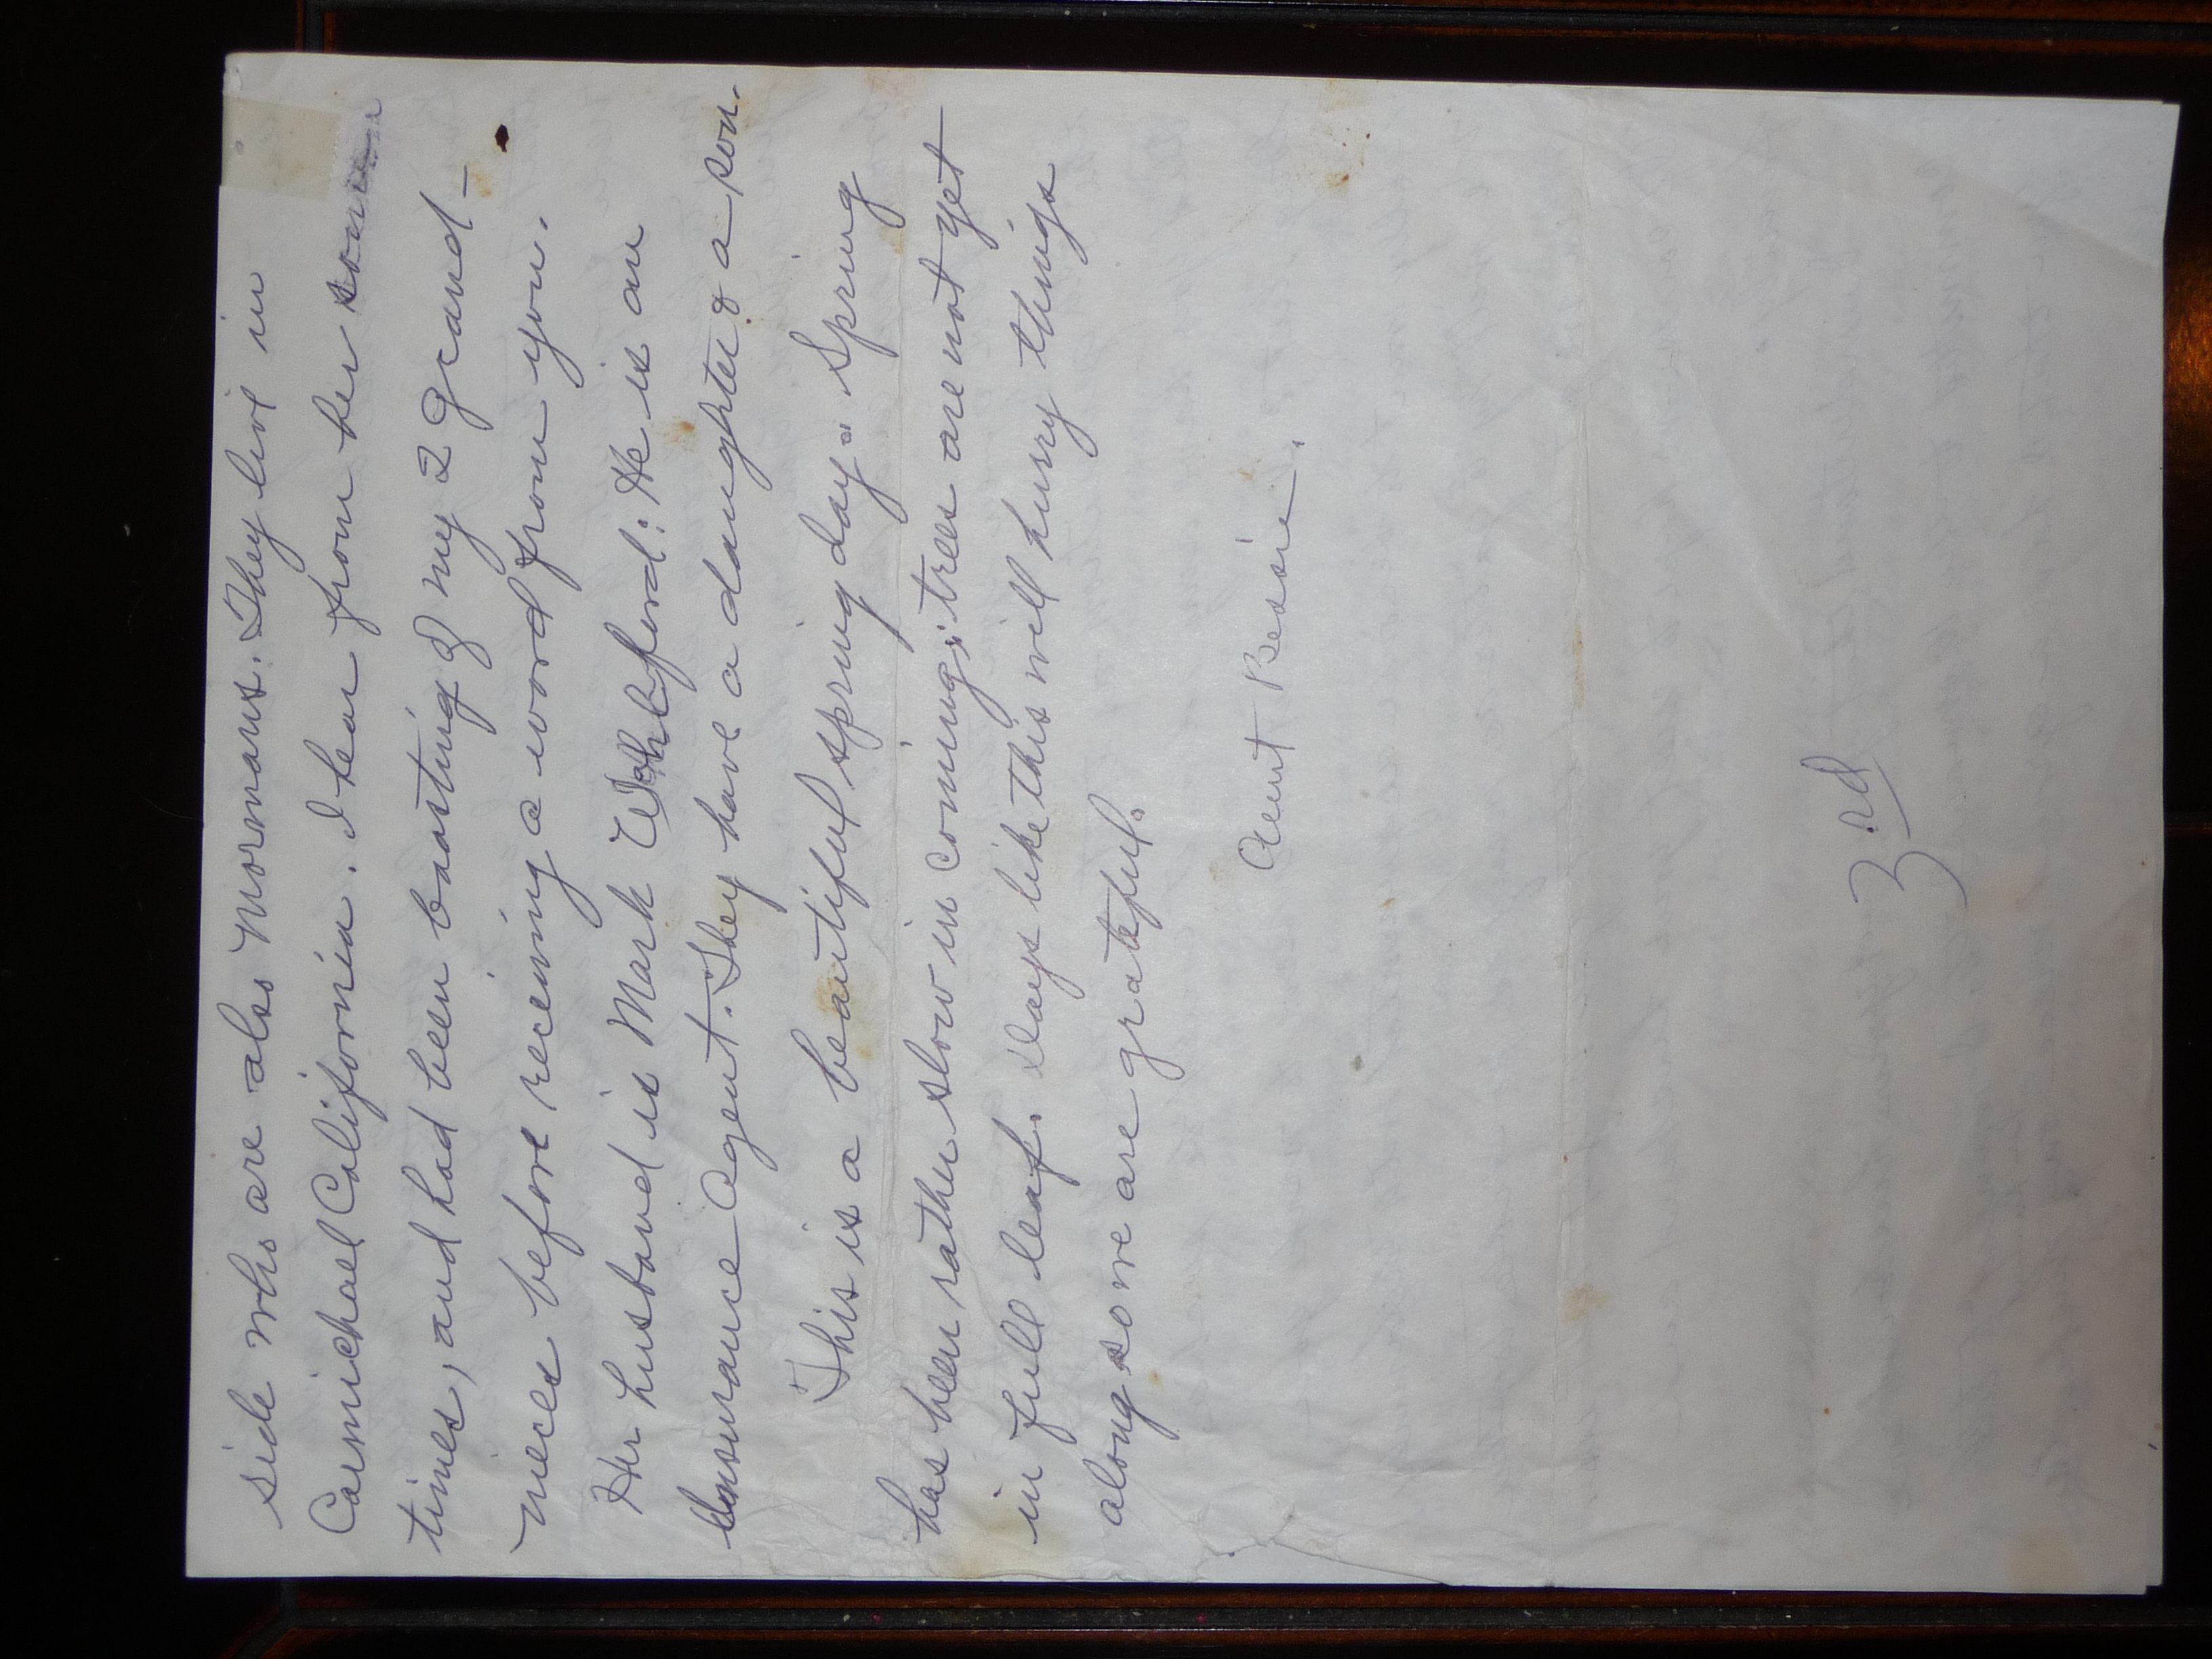 side who are also Mormans. They live in
Carmichael California. I hear from her some
times, and had been boasting of my 2 grand-
nieces before receiving a word from you.
Her husband is Mark He is an
insurance Agent. They have a daughter & a son.
This is a beautiful spring day. Spring
has been rather slow in coming; trees are not yet
in full leaf. Days like this will hurry things
along so we are grateful.
Aunt Bessie.
3rd